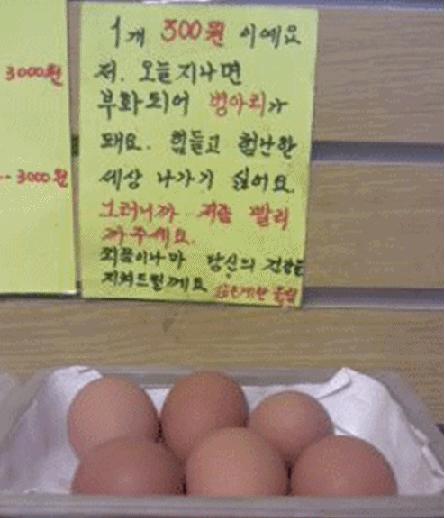 3000원
3000원
1개 300원 이예요
저. 오늘 지나면
부화되어 병아리가
돼요. 힘들고 험난한
세상 나가기 싫어요.
그러니까 저를 빨리
까주세요.
외롭이나마 당신의 건강을
지켜드릴께요